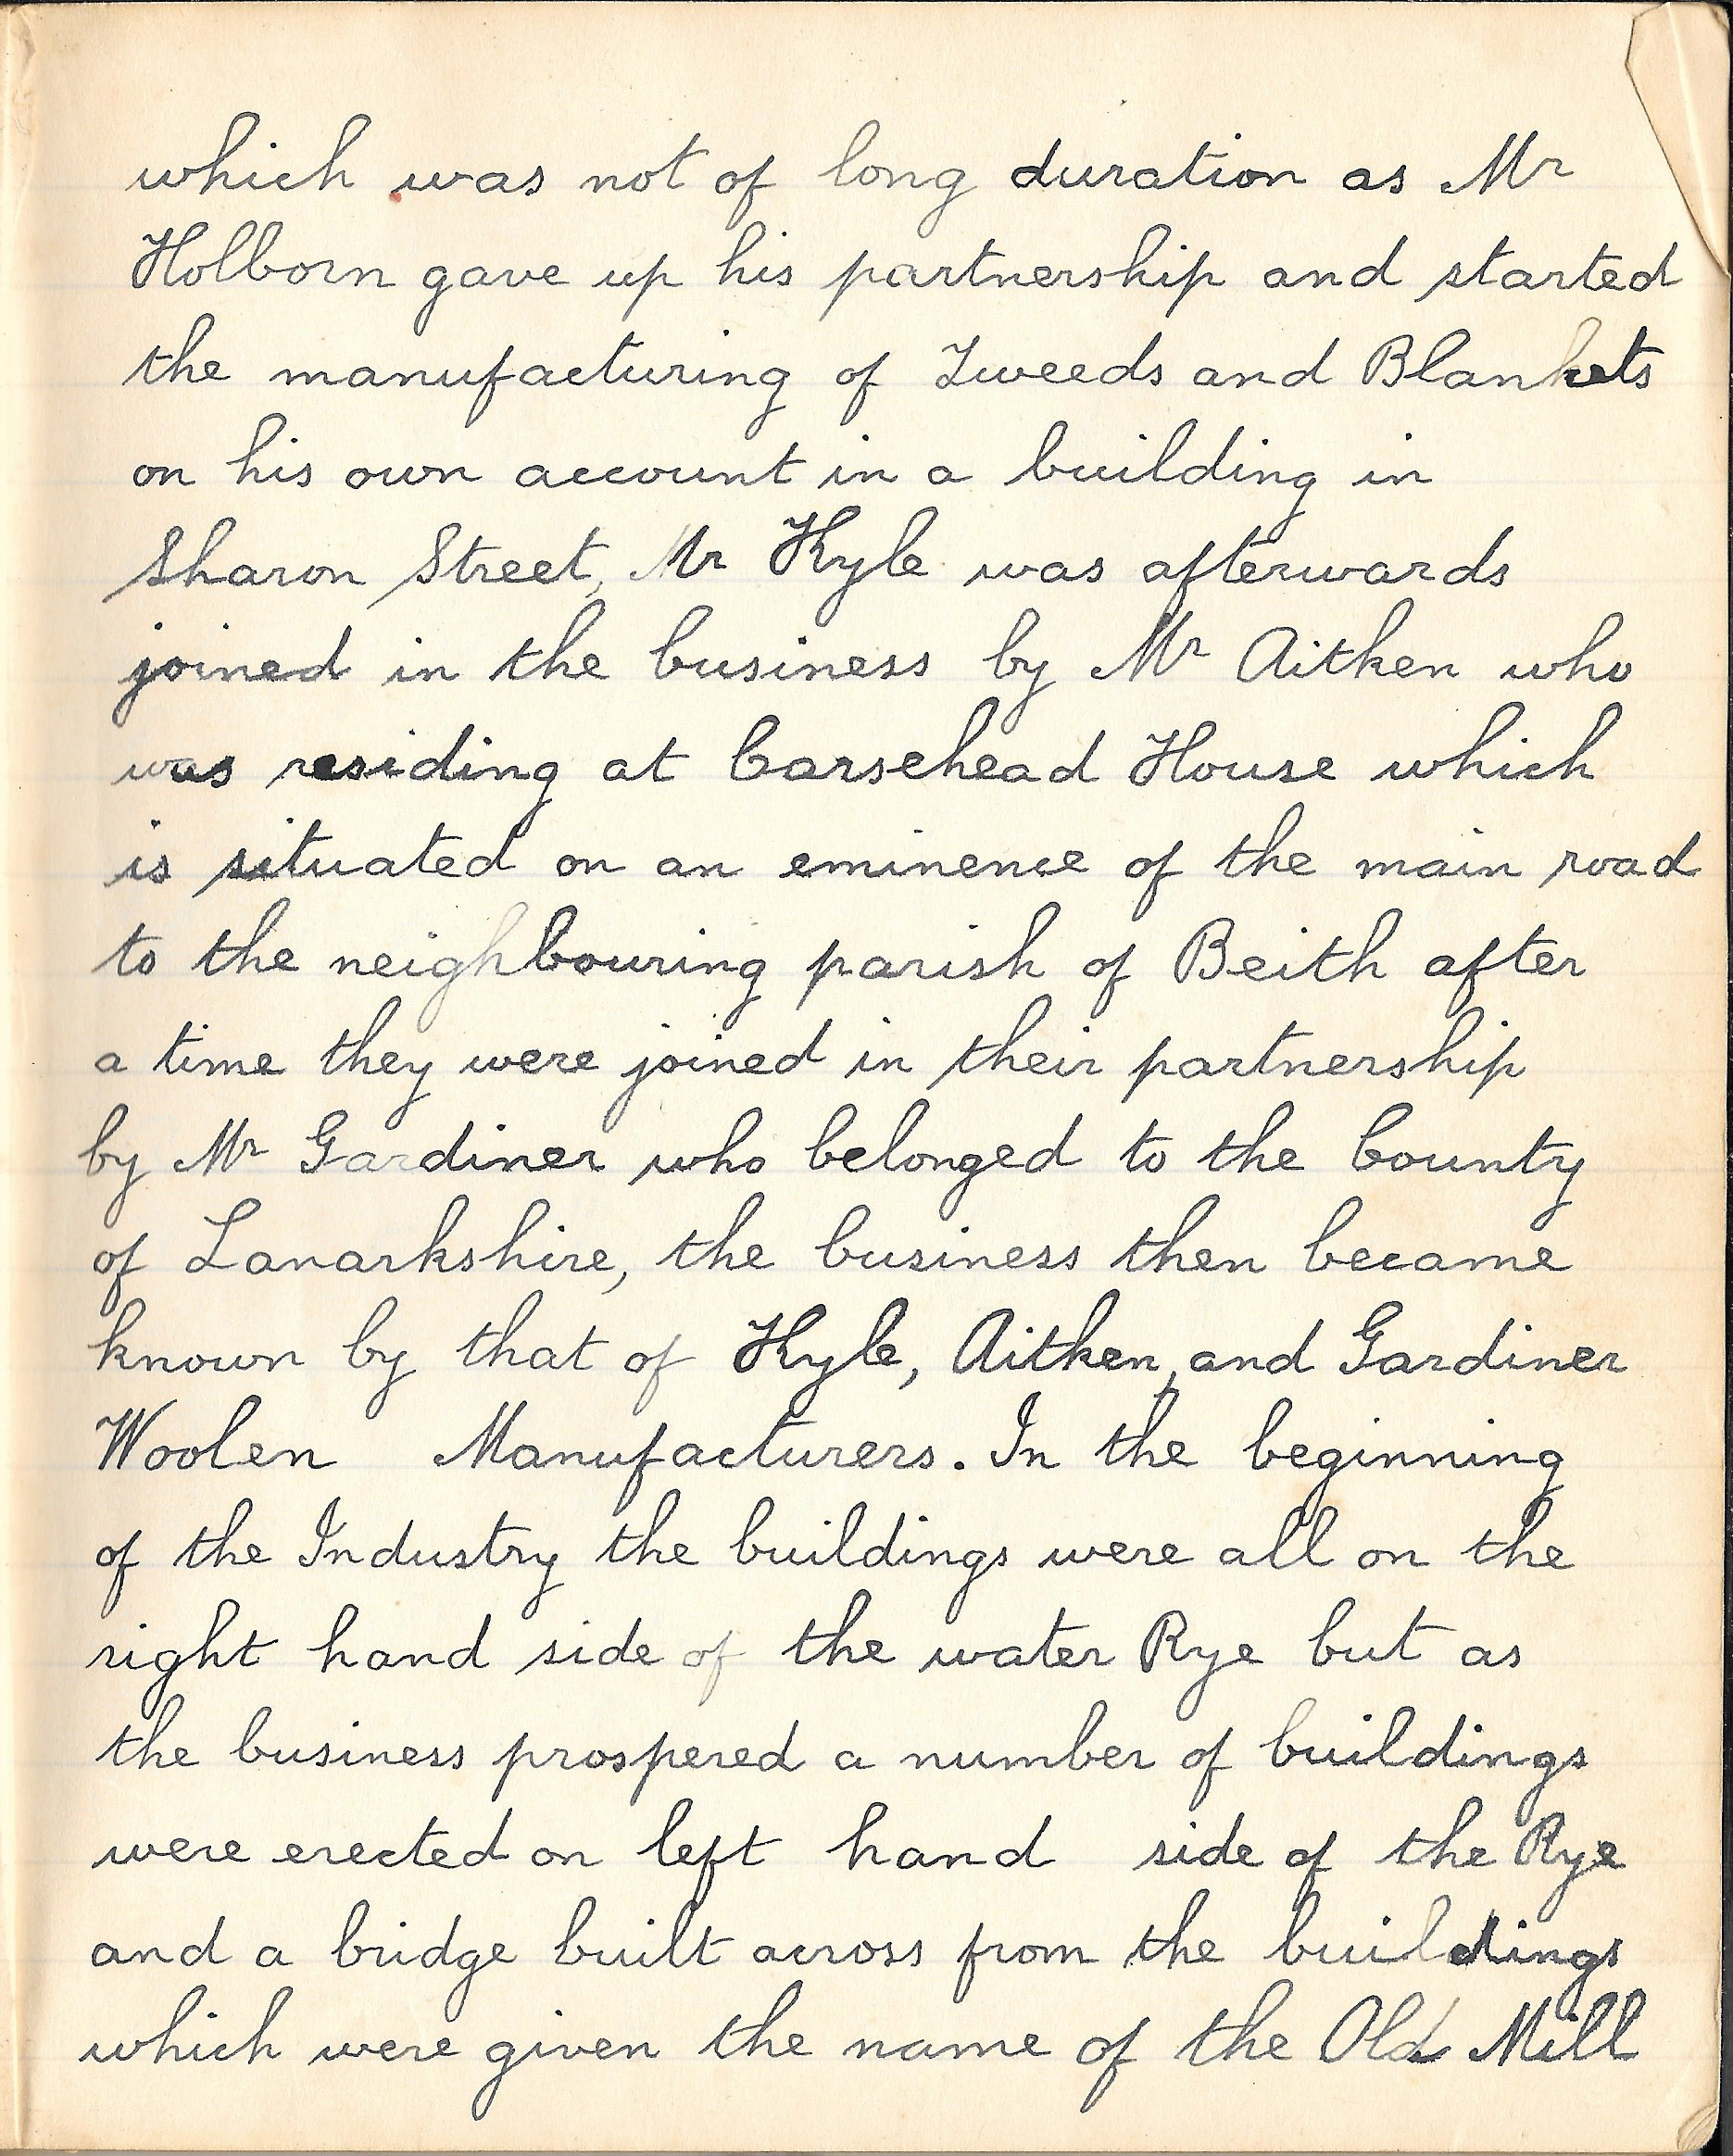 which was not of long duration as Mr
Holborn gave up his partnership and started
the manufacturing of Tweeds and Blankets
on his own account in a building in
Sharon Street, Mr Kyle was afterwards
joined in the business by Mr Aitken who
was residing at Carsehead House which
is situated on an eminence of the main road
to the neighbouring parish of Beith after
a time they were joined in their partnership
by Mr Gardiner who belonged to the County
of Lanarkshire, the business then became
known by that of Kyle, Aitken, and Gardiner
Woolen Manufacturers. In the beginning
of the Industry the buildings were all on the
right hand side of the water Rye but as
the business prospered a number of buildings
were erected on left hand side of the Rye
and a bridge built across from the buildings
which were given the name of the Old Mill